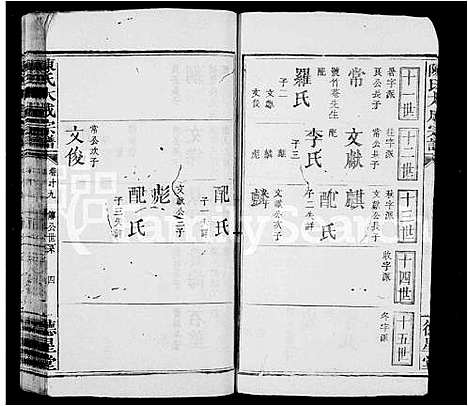 陳氏大成宗譜
十一世
十二世
十三世
十四世
十五世
暑字派
良公長子
常
號竹菴先生
配
羅氏
子二
文獻
文俊
往字派
常公長子
文獻
配
李氏
子三
麒
彪
麟
秋字派
文獻公長子
麒
配
氏
子二失詳
麟
文獻公次子
收字派
冬字派
德星堂
配
氏
子一失詳
彪
文獻公三子
配
氏
子三失詳
文俊
常公次子
陳氏大成宗譜
四
德星堂
FamilySearch